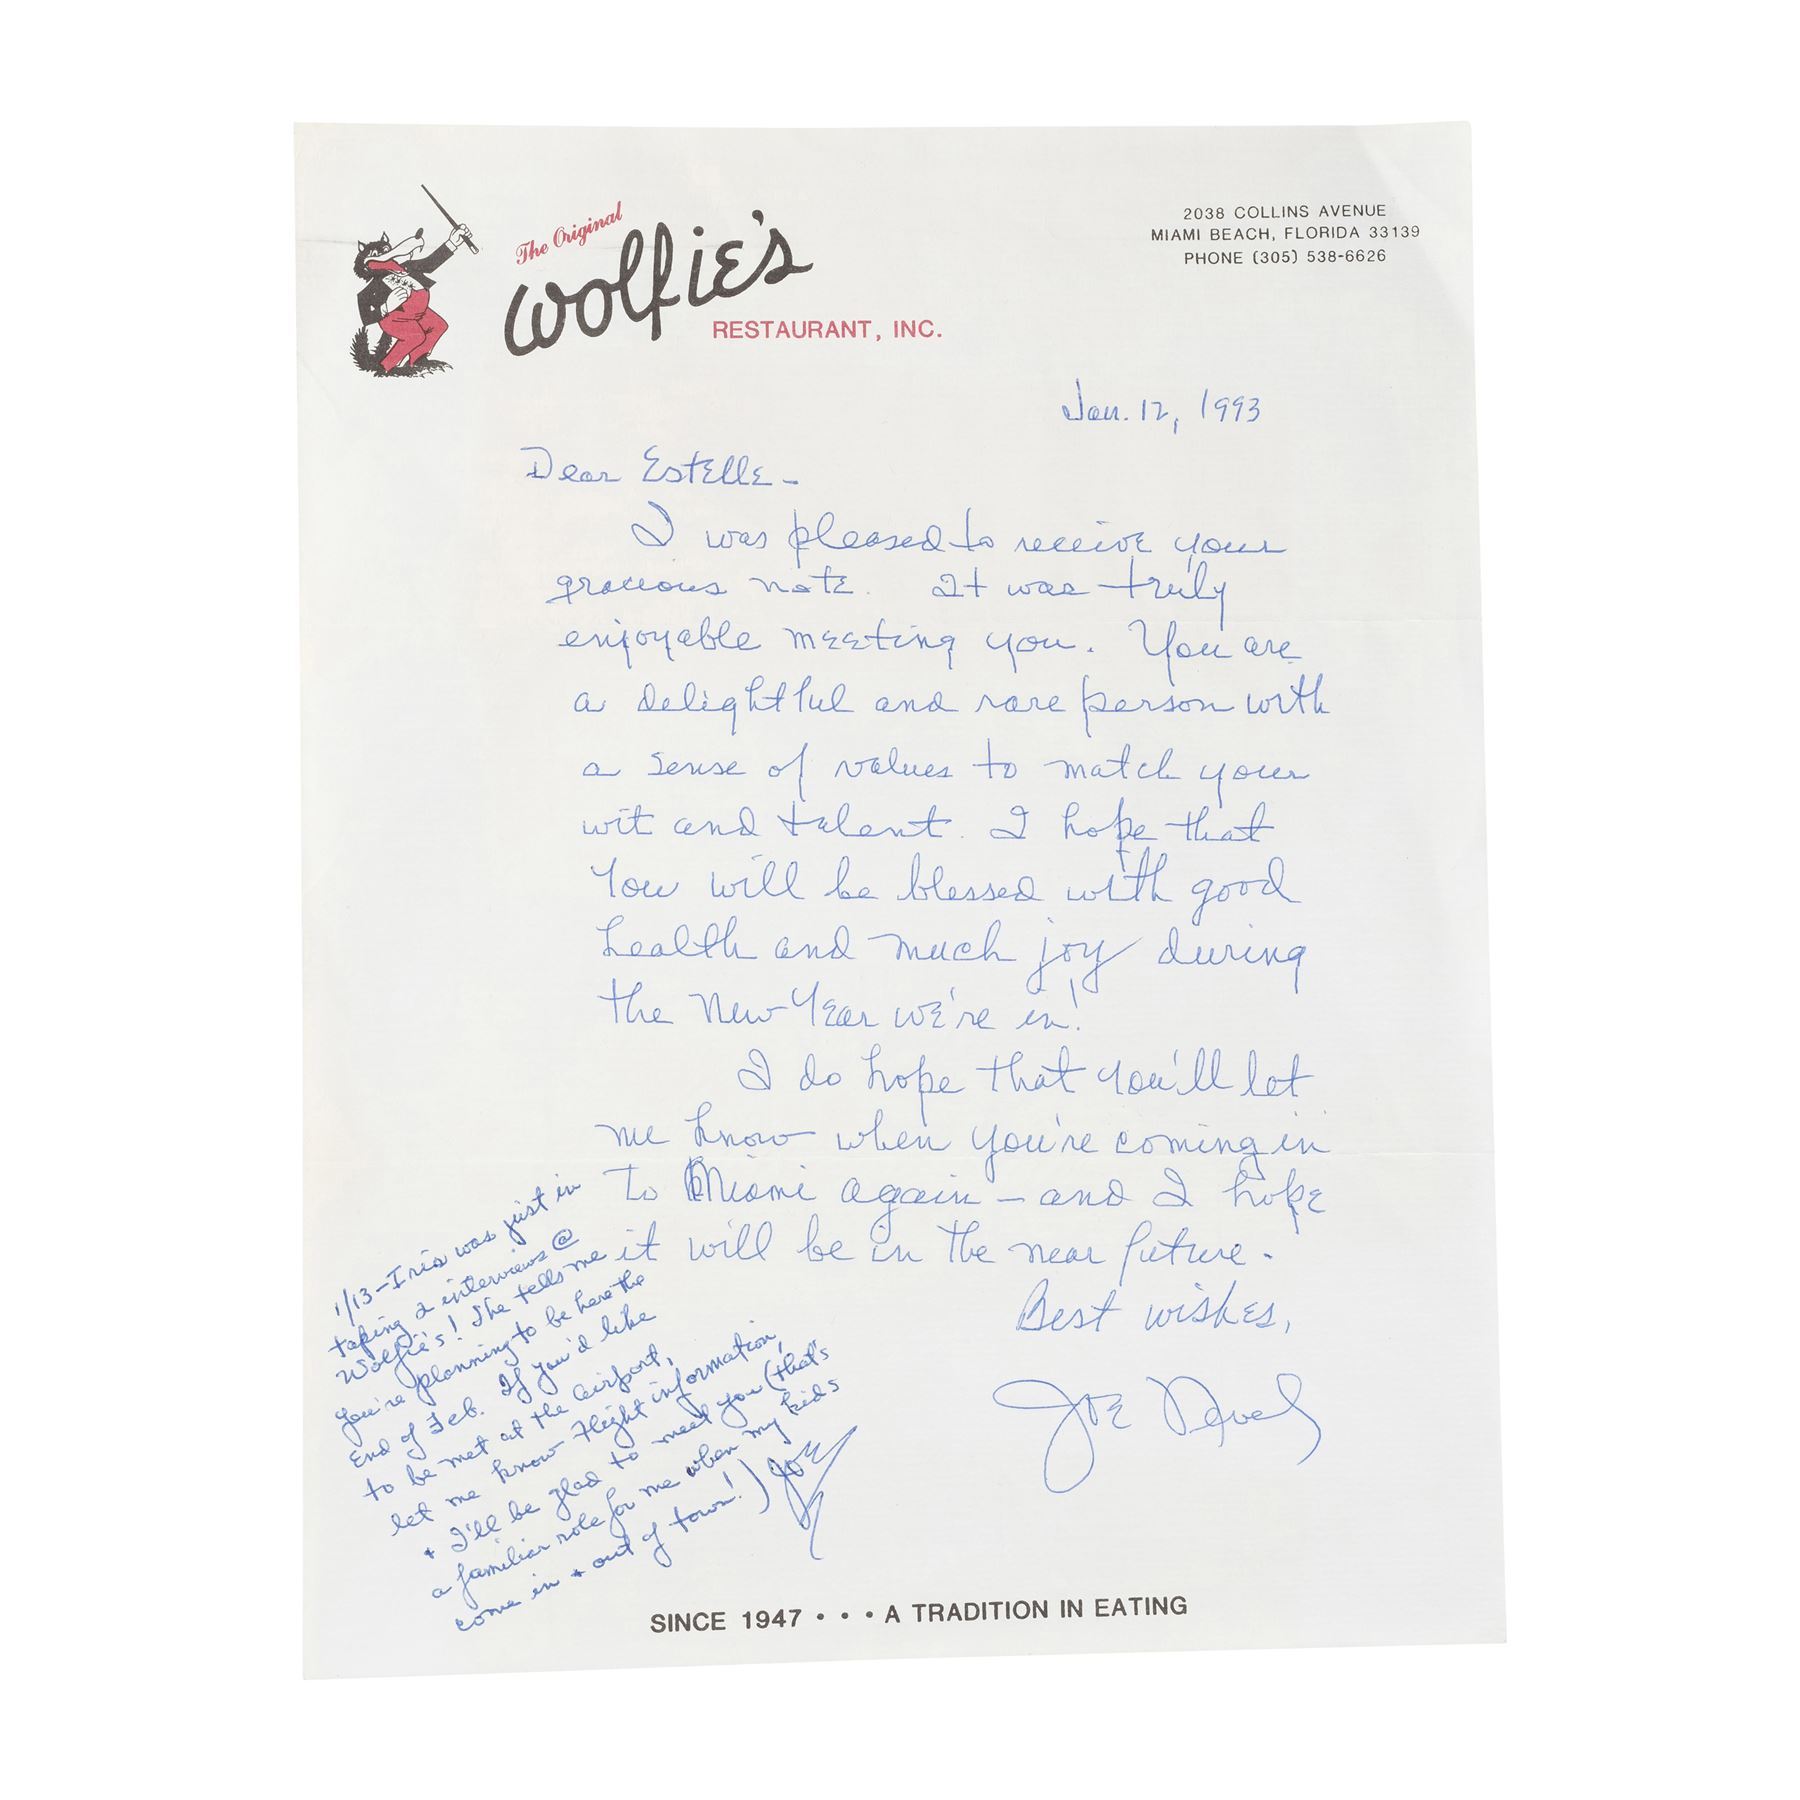 The Original
Wolfie's
RESTAURANT, INC.
2038 COLLINS AVENUE
MIAMI BEACH, FLORIDA 33139
PHONE (305) 538-6626
Jan. 12, 1993
Dear Estelle -
I was pleased to receive your
gracious note. It was truly
enjoyable meeting you. You are
a delightful and rare person with
a sense of values to match your
wit and talent. I hope that
you will be blessed with good
health and much joy during
the New Year we're in!
I do hope that you'll let
me know when you're coming in
to Miami again - and I hope
it will be in the near future.
Best wishes,
Joe
1/13 - Iris was just in
taping 2 interviews @
Wolfie's! She tells me
you're planning to be here the
end of Feb. If you'd like
to be met at the airport,
let me know flight information,
+ I'll be glad to meet you (that's
a familiar role for me when my kids
come in + out of town!) Joe
SINCE 1947 • • • A TRADITION IN EATING